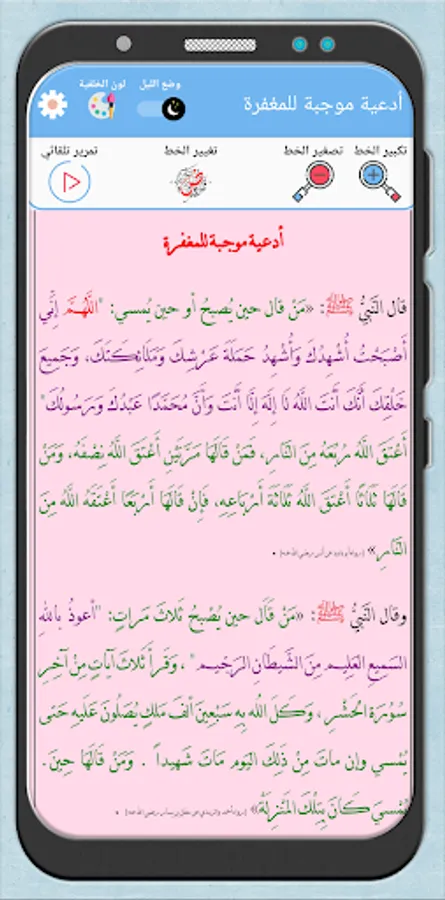 وضع الليل
لون الخلفية
أدعية موجبة للمغفرة
تكبير الخط
تصغير الخط
تغيير الخط
تمرير تلقائي
أدعية موجبة للمغفرة
قال النَّبِيُّ ﷺ: «مَنْ قال حين يُصبحُ أو حين يُمسي: "اللَّهُمَّ إِنِّي
أَصْبَحْتُ أُشْهِدُكَ وَأُشْهِدُ حَمَلَةَ عَرْشِكَ وَمَلَائِكَتَكَ، وَجَمِيعَ
خَلْقِكَ أَنَّكَ أَنْتَ اللَّهُ لَا إِلَهَ إِلَّا أَنْتَ وَأَنَّ مُحَمَّدًا عَبْدُكَ وَرَسُولُكَ"
أَعْتَقَ اللَّهُ رُبُعَهُ مِنَ النَّارِ، فَمَنْ قَالَهَا مَرَّتَيْنِ أَعْتَقَ اللَّهُ نِصْفَهُ، وَمَنْ
قَالَهَا ثَلَاثًا أَعْتَقَ اللَّهُ ثَلَاثَةَ أَرْبَاعِهِ، فَإِنْ قَالَهَا أَرْبَعًا أَعْتَقَهُ اللَّهُ مِنَ
النَّارِ» .
وقال النَّبِيُّ ﷺ: «مَنْ قَال حين يُصْبحُ ثَلاثَ مَراتٍ: "أعوذُ باللهِ
السَمِيعِ العَلِيمِ مِنَ الشَّيطَانِ الرَّجِيمِ" ، وَقَرأ ثَلاثَ آياتٍ مِنْ آخِرِ
سُورَةِ الحَشْرِ ، وَكَلَ الله بِهِ سَبْعِينَ ألفَ مَلكٍ يُصَلُونَ عَلَيهِ حَتى
يُمْسي وإن ماتَ مِنْ ذلِكَ اليَوم مَاتَ شَهِيداً . وَمَنْ قَالَهَا حِينَ.
يُمْسيَ كَانَ بِتِلْكَ المَنْزِلَةُ» .